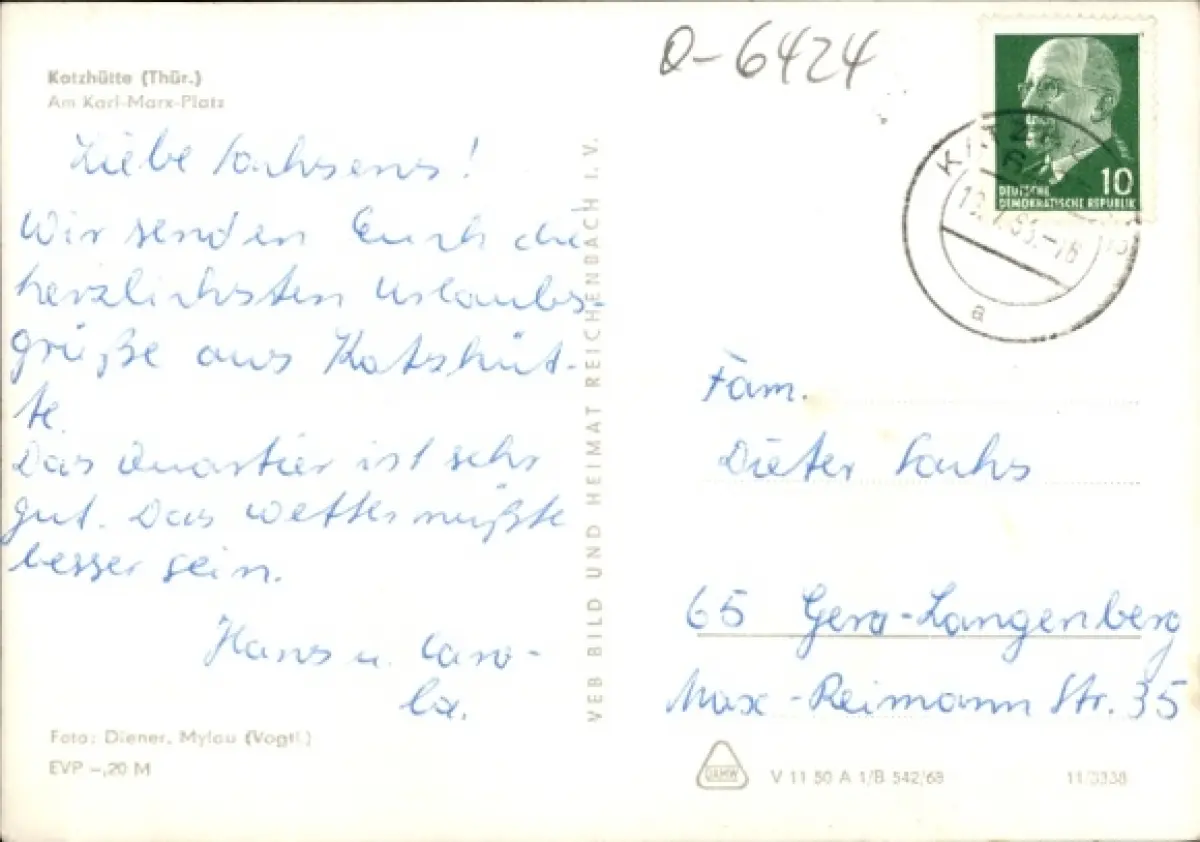 Katzhütte (Thür.)
Am Karl-Marx-Platz
Liebe Sachsens!
Wir senden Euch die
herzlichsten Urlaubs-
grüße aus Katzhüt-
te.
Das Quartier ist sehr
gut. Das Wetter müßte
besser sein.
Hans u. Caro-
la.
Foto: Diener, Mylau (Vogtl.)
EVP -,20 M
VEB BILD UND HEIMAT REICHENBACH I. V.
O-6424
10
DEUTSCHE
DEMOKRATISCHE REPUBLIK
a
Fam.
Dieter Sachs
65 Gera-Langenberg
Max-Reimann Str. 35
DAMW
V 11 50 A 1/B 542/68